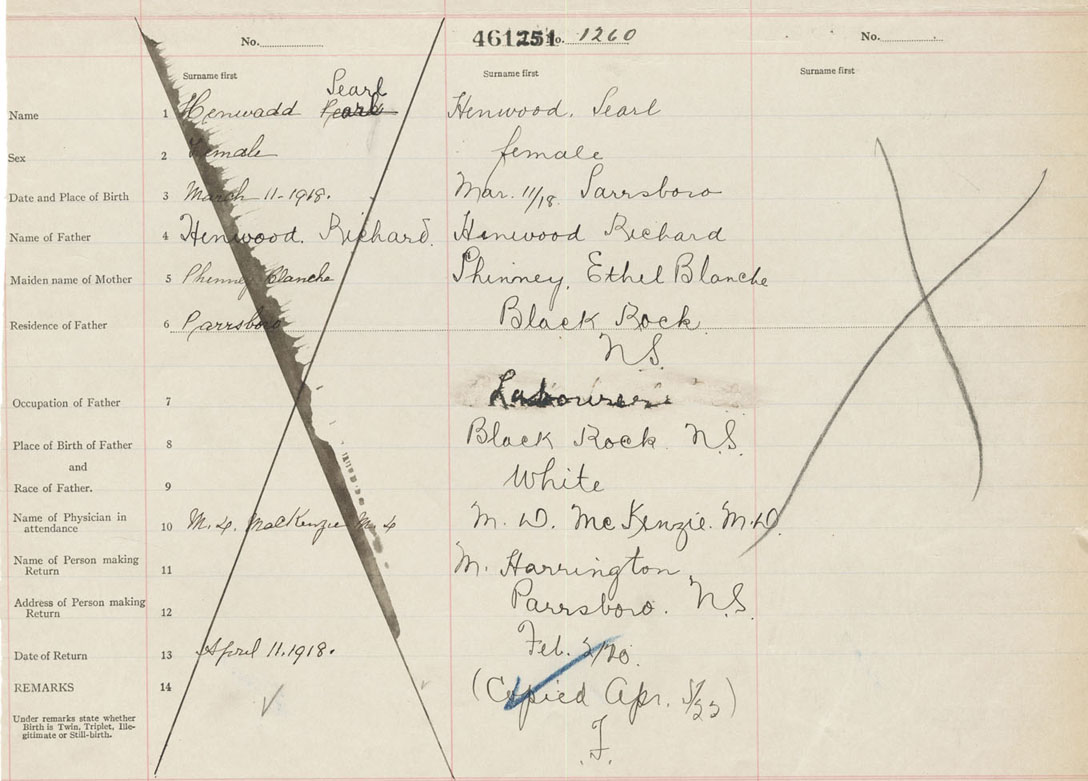 No.
461251 No. 1260
No.
Surname first
Surname first
Surname first
Searl
Name 1 Henwadd Pearl Henwood, Searl
Sex 2 Female female
Date and Place of Birth 3 March 11-1918. Mar. 11/18 Parrsboro
Name of Father 4 Henwood. Richard. Henwood Richard
Maiden name of Mother 5 Phinney Blanche Phinney, Ethel Blanche
Residence of Father 6 Parrsboro Black Rock
N.S.
Occupation of Father 7 Labourer
Place of Birth of Father 8 Black Rock N.S.
and
Race of Father. 9 White
Name of Physician in
attendance 10 M.D. MacKenzie M.D M.D. McKenzie. M.D.
Name of Person making
Return 11 M. Harrington
Address of Person making
Return 12 Parrsboro. N.S.
Date of Return 13 April 11.1918. Feb. 2/20.
REMARKS 14 (Copied Apr. 5/23)
Under remarks state whether
Birth is Twin, Triplet, Ille-
gitimate or Still-birth.
F.